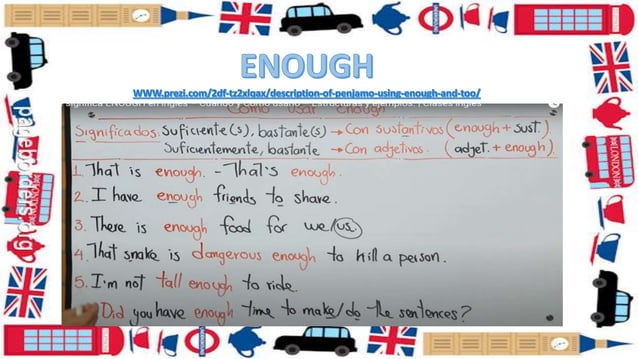 ENOUGH
WWW.prezi.com/2df-tz2xlqax/description-of-penjamo-using-enough-and-too/
Como usar enough
Significados: Suficiente(s), bastante(s) → Con Sustantivos (enough + Sust.)
Suficientemente, bastante → Con adjetivos. (adjet. + enough)
1. That is enough. - That's enough.
2. I have enough friends to share.
3. There is enough food for we/us.
4. That snake is dangerous enough to kill a person.
5. I'm not tall enough to ride.
Did you have enough time to make/do the sentences?
pageborders.org
LONDON
LONDON